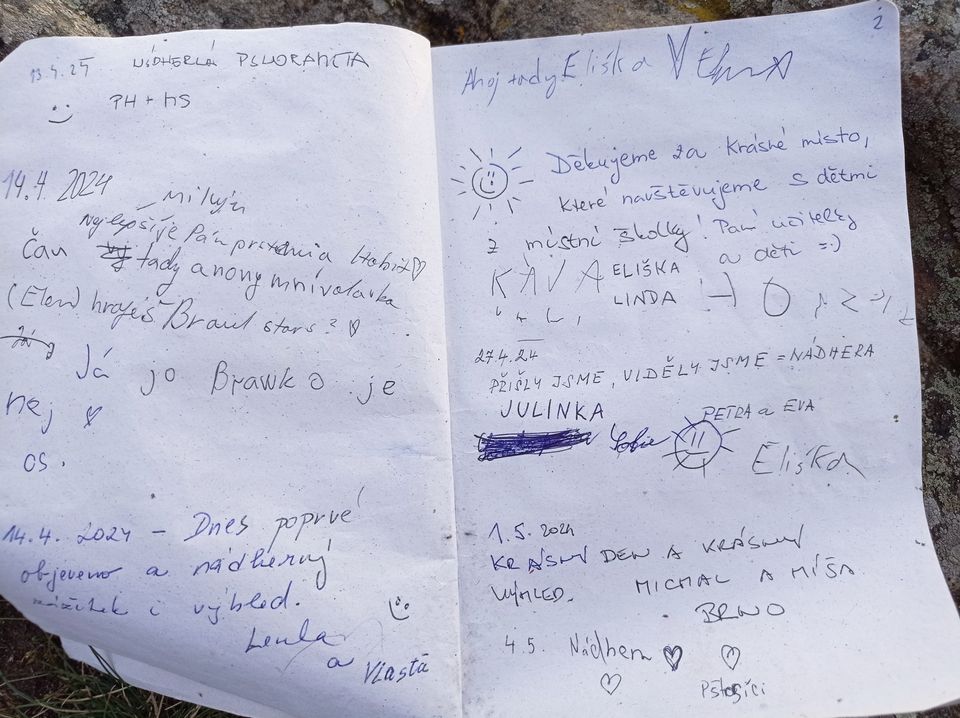 13.4.24 NÁDHERNÁ
PH + MS
14.4.2024 miluju
Nejlepší je Pán prstenů a Hobit
Čau tady anonymní volavka
(Elen) hraješ Brawl stars?
Já jo Brawk o je
nej
os.
14.4. 2024 - Dnes poprvé
objeveno a nádherný
zážitek i výhled.
Lenka
a Vlasta
2
Ahoj tady Eliška
Děkujeme za krásné místo,
které navštěvujeme s dětmi
z místní školky! Paní učitelky
a děti =:)
KÁVA ELIŠKA
LINDA
27.4.24
PŘIŠLY JSME, VIDĚLY JSME = NÁDHERA
JULINKA PETRA a EVA
Sofie
Eliška
1.5. 2024
KRÁSNÝ DEN A KRÁSNÝ
VÝHLED. MICHAL A MÍŠA
BRNO
4.5. Nádhera